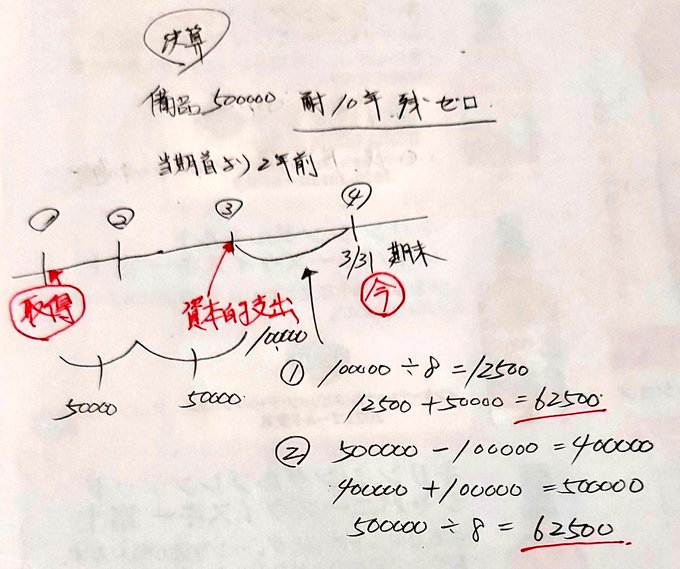 決算
備品 500000 耐10年 残・ゼロ
当期首より2年前
① ② ③ ④
3/31 期末
取得 資本的支出 今
100000
50000 50000
① 100000÷8=12500
12500+50000=62500
② 500000-100000=400000
400000+100000=500000
500000÷8=62500